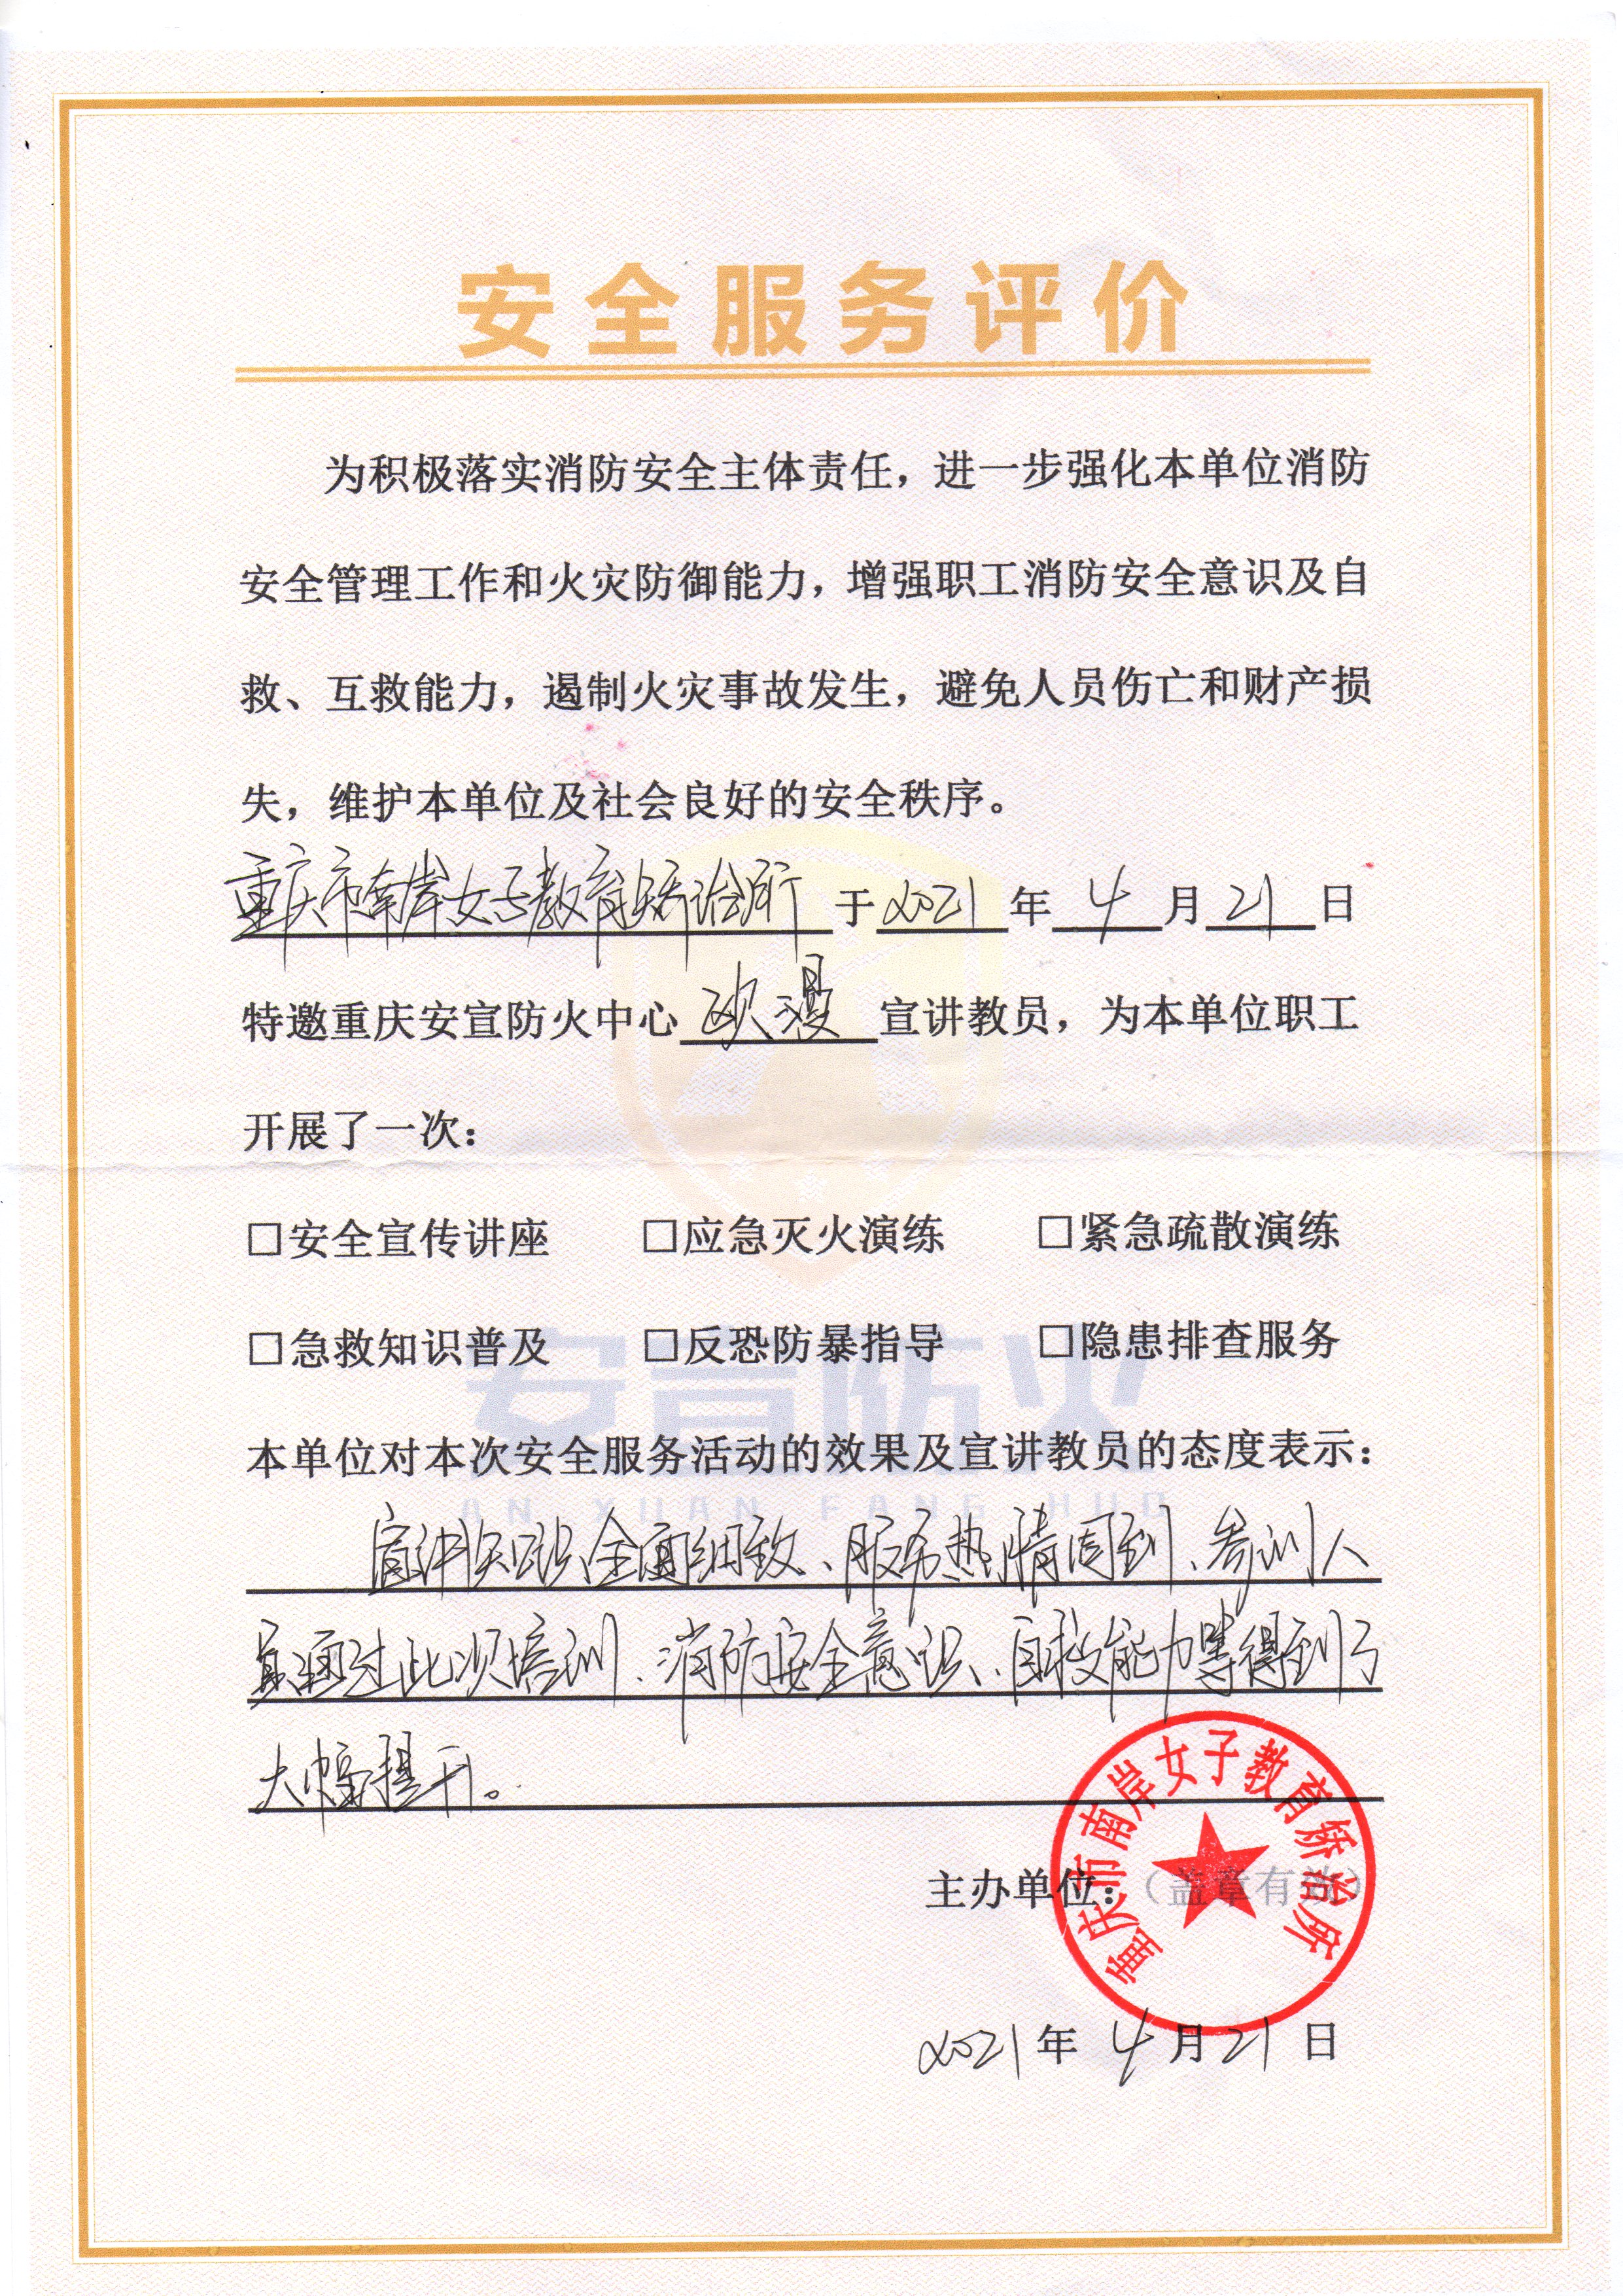 安全服务评价
为积极落实消防安全主体责任，进一步强化本单位消防
安全管理工作和火灾防御能力，增强职工消防安全意识及自
救、互救能力，遏制火灾事故发生，避免人员伤亡和财产损
失，维护本单位及社会良好的安全秩序。
重庆市南岸女子教育矫治所于2021年4月21日
特邀重庆安宣防火中心欧漫宣讲教员，为本单位职工
开展了一次：
□安全宣传讲座 □应急灭火演练 □紧急疏散演练
□急救知识普及 □反恐防暴指导 □隐患排查服务
安宣防火
本单位对本次安全服务活动的效果及宣讲教员的态度表示：
AN XUAN FANG HUO
宣讲知识全面细致、服务热情周到、参训人
员通过此次培训、消防安全意识、自救能力等得到了
大幅提升。
主办单位：（盖章有效）
重庆市南岸女子教育矫治所
2021年4月21日